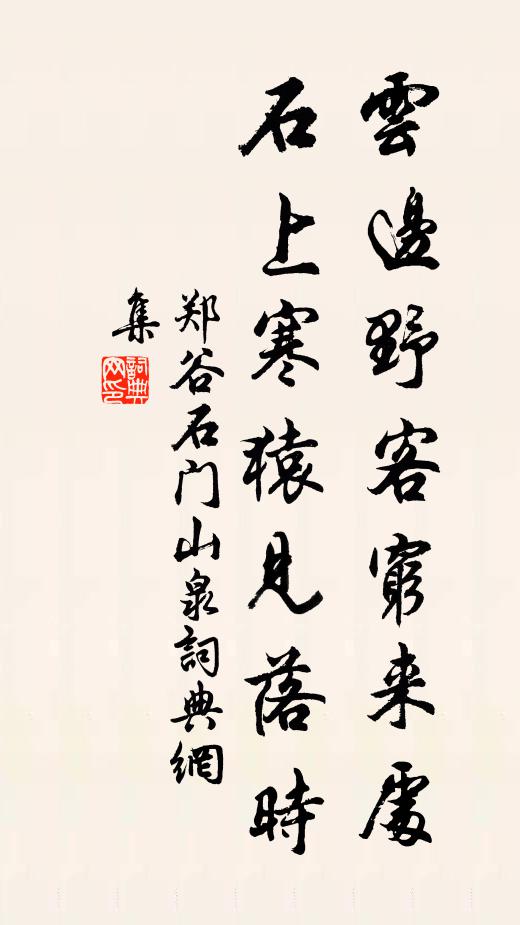 雲邊野客窮来處
石上寒猿見落時
郑谷石门山泉詞典網
集
詞典网印